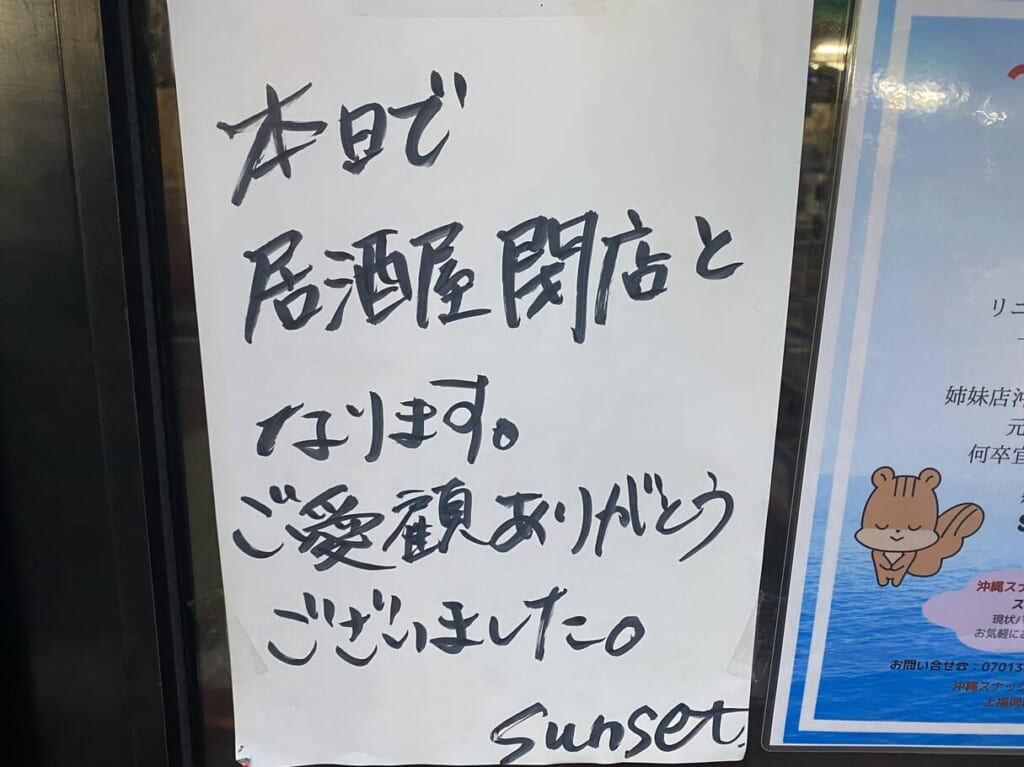 本日で
居酒屋閉店と
なります。
ご愛顧ありがとう
ございました。
sunset
リニ
姉妹店沖
元
何卒宜
S
沖縄スナ
ス
現状パ
お気軽にお
お問い合せ☎:07013
沖縄スナック
上福岡